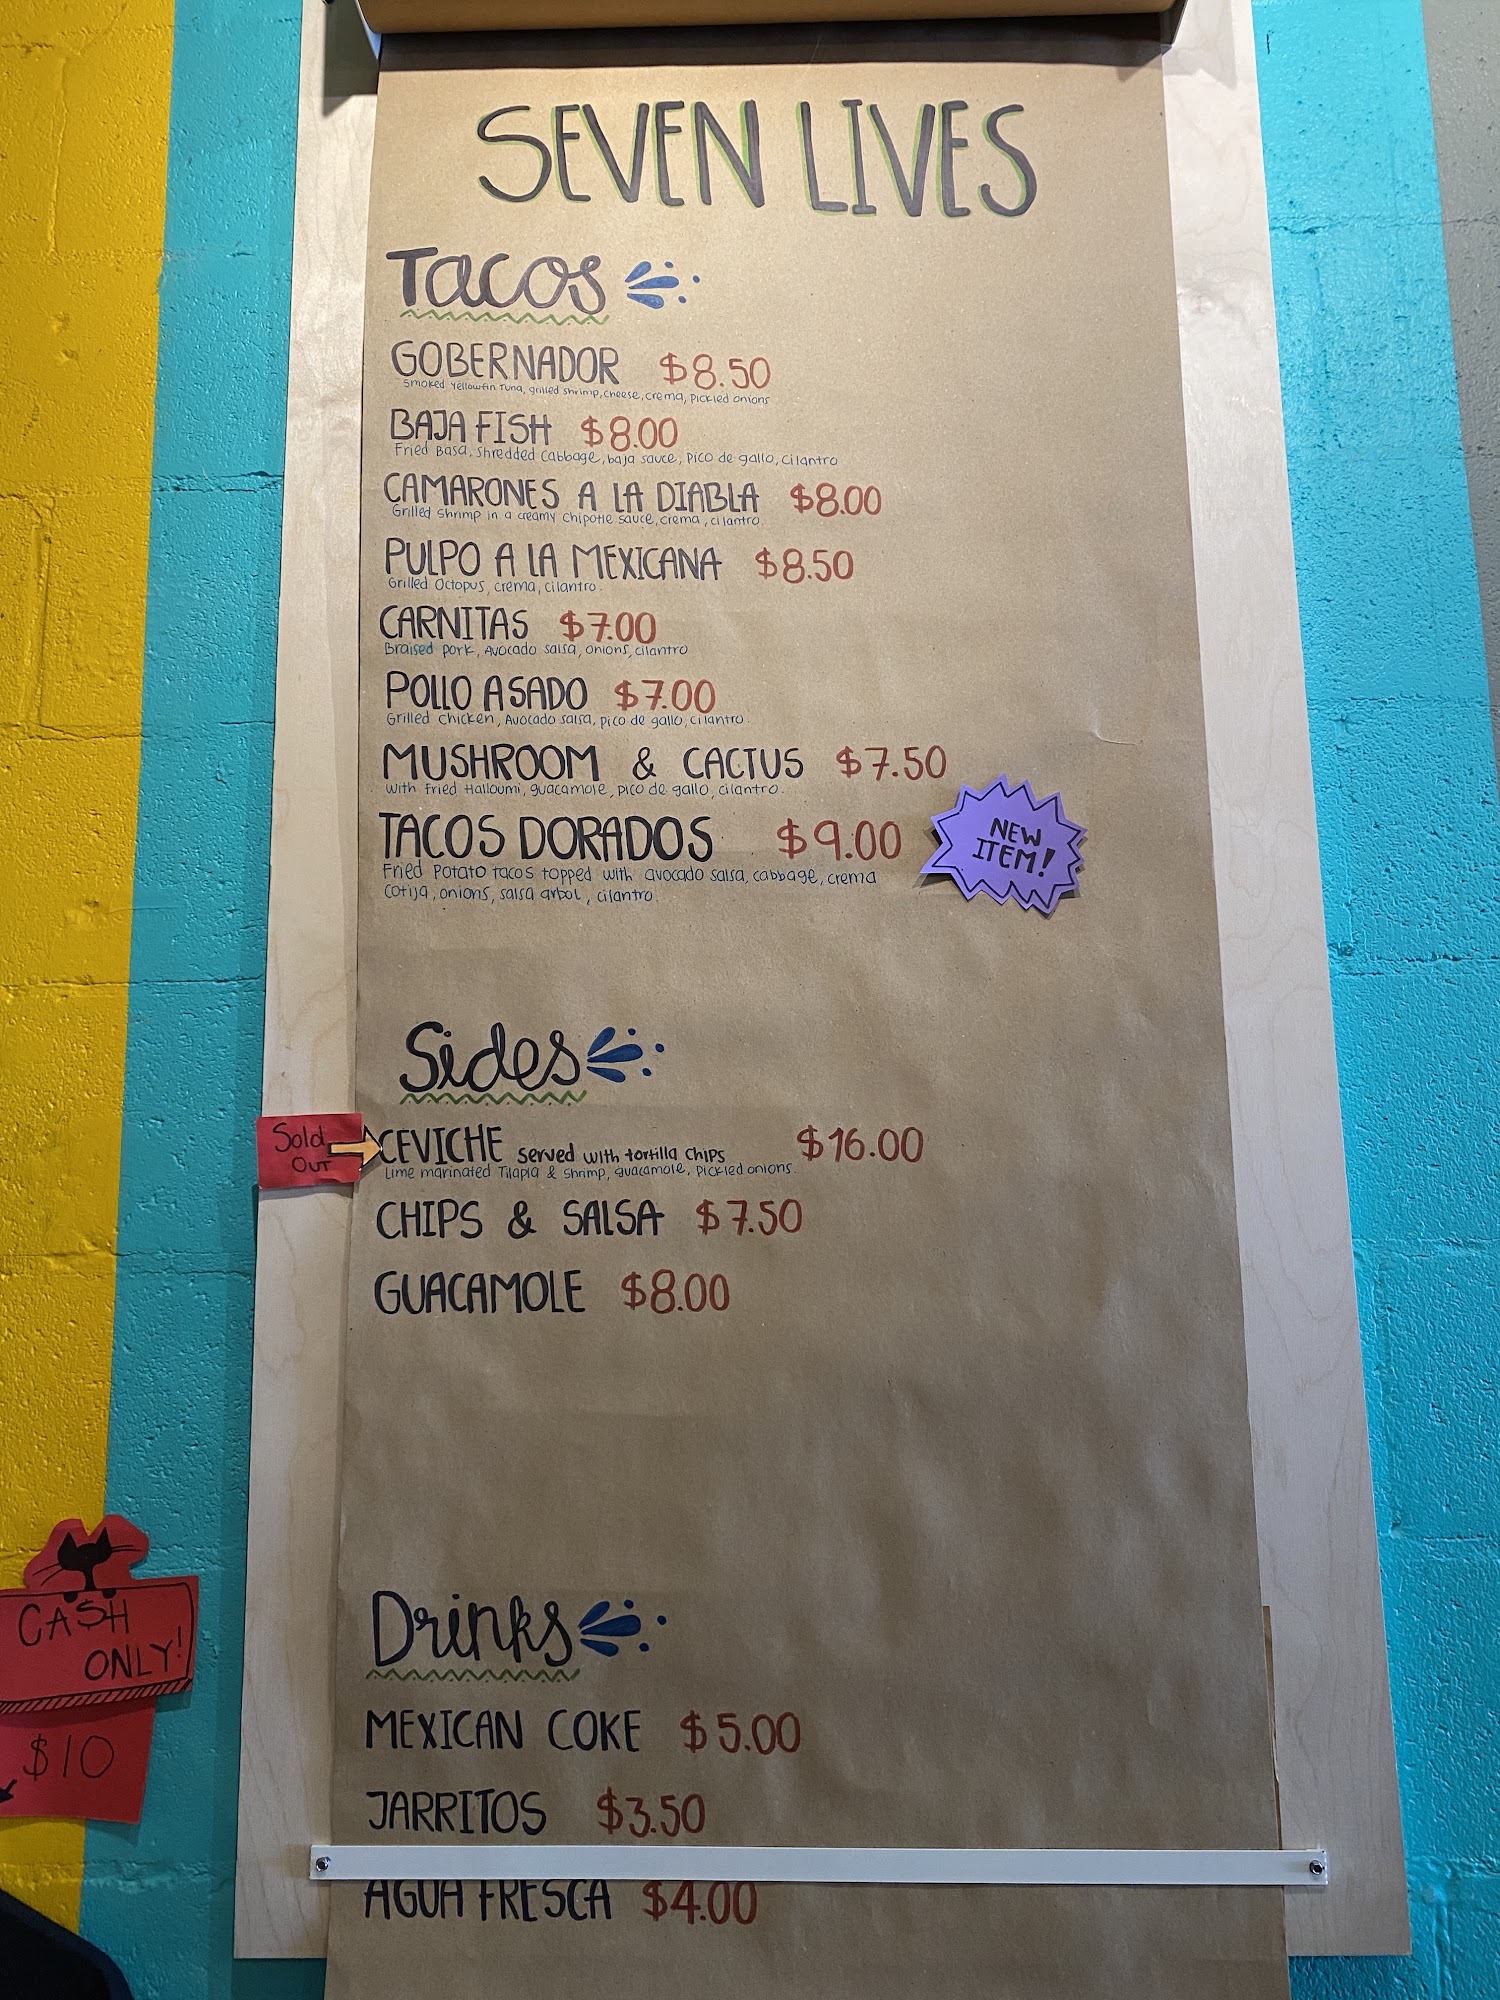 SEVEN LIVES
Tacos
GOBERNADOR $8.50
Smoked Yellowfin Tuna, grilled shrimp, cheese, crema, pickled onions
BAJA FISH $8.00
Fried Basa, shredded cabbage, baja sauce, pico de gallo, cilantro
CAMARONES A LA DIABLA $8.00
Grilled shrimp in a creamy chipotle sauce, crema, cilantro.
PULPO A LA MEXICANA $8.50
Grilled Octopus, crema, cilantro.
CARNITAS $7.00
Braised pork, Avocado salsa, onions, cilantro
POLLO ASADO $7.00
Grilled chicken, Avocado salsa, pico de gallo, cilantro.
MUSHROOM & CACTUS $7.50
with Fried Halloumi, guacamole, pico de gallo, cilantro.
TACOS DORADOS $9.00
NEW
ITEM!
Fried Potato tacos topped with avocado salsa, cabbage, crema
cotija, onions, salsa arbol, cilantro.
Sides
Sold
OUT
CEVICHE served with tortilla chips $16.00
Lime marinated Tilapia & shrimp, guacamole, pickled onions.
CHIPS & SALSA $7.50
GUACAMOLE $8.00
Drinks
CASH
ONLY!
$10
MEXICAN COKE $5.00
JARRITOS $3.50
AGUA FRESCA $4.00